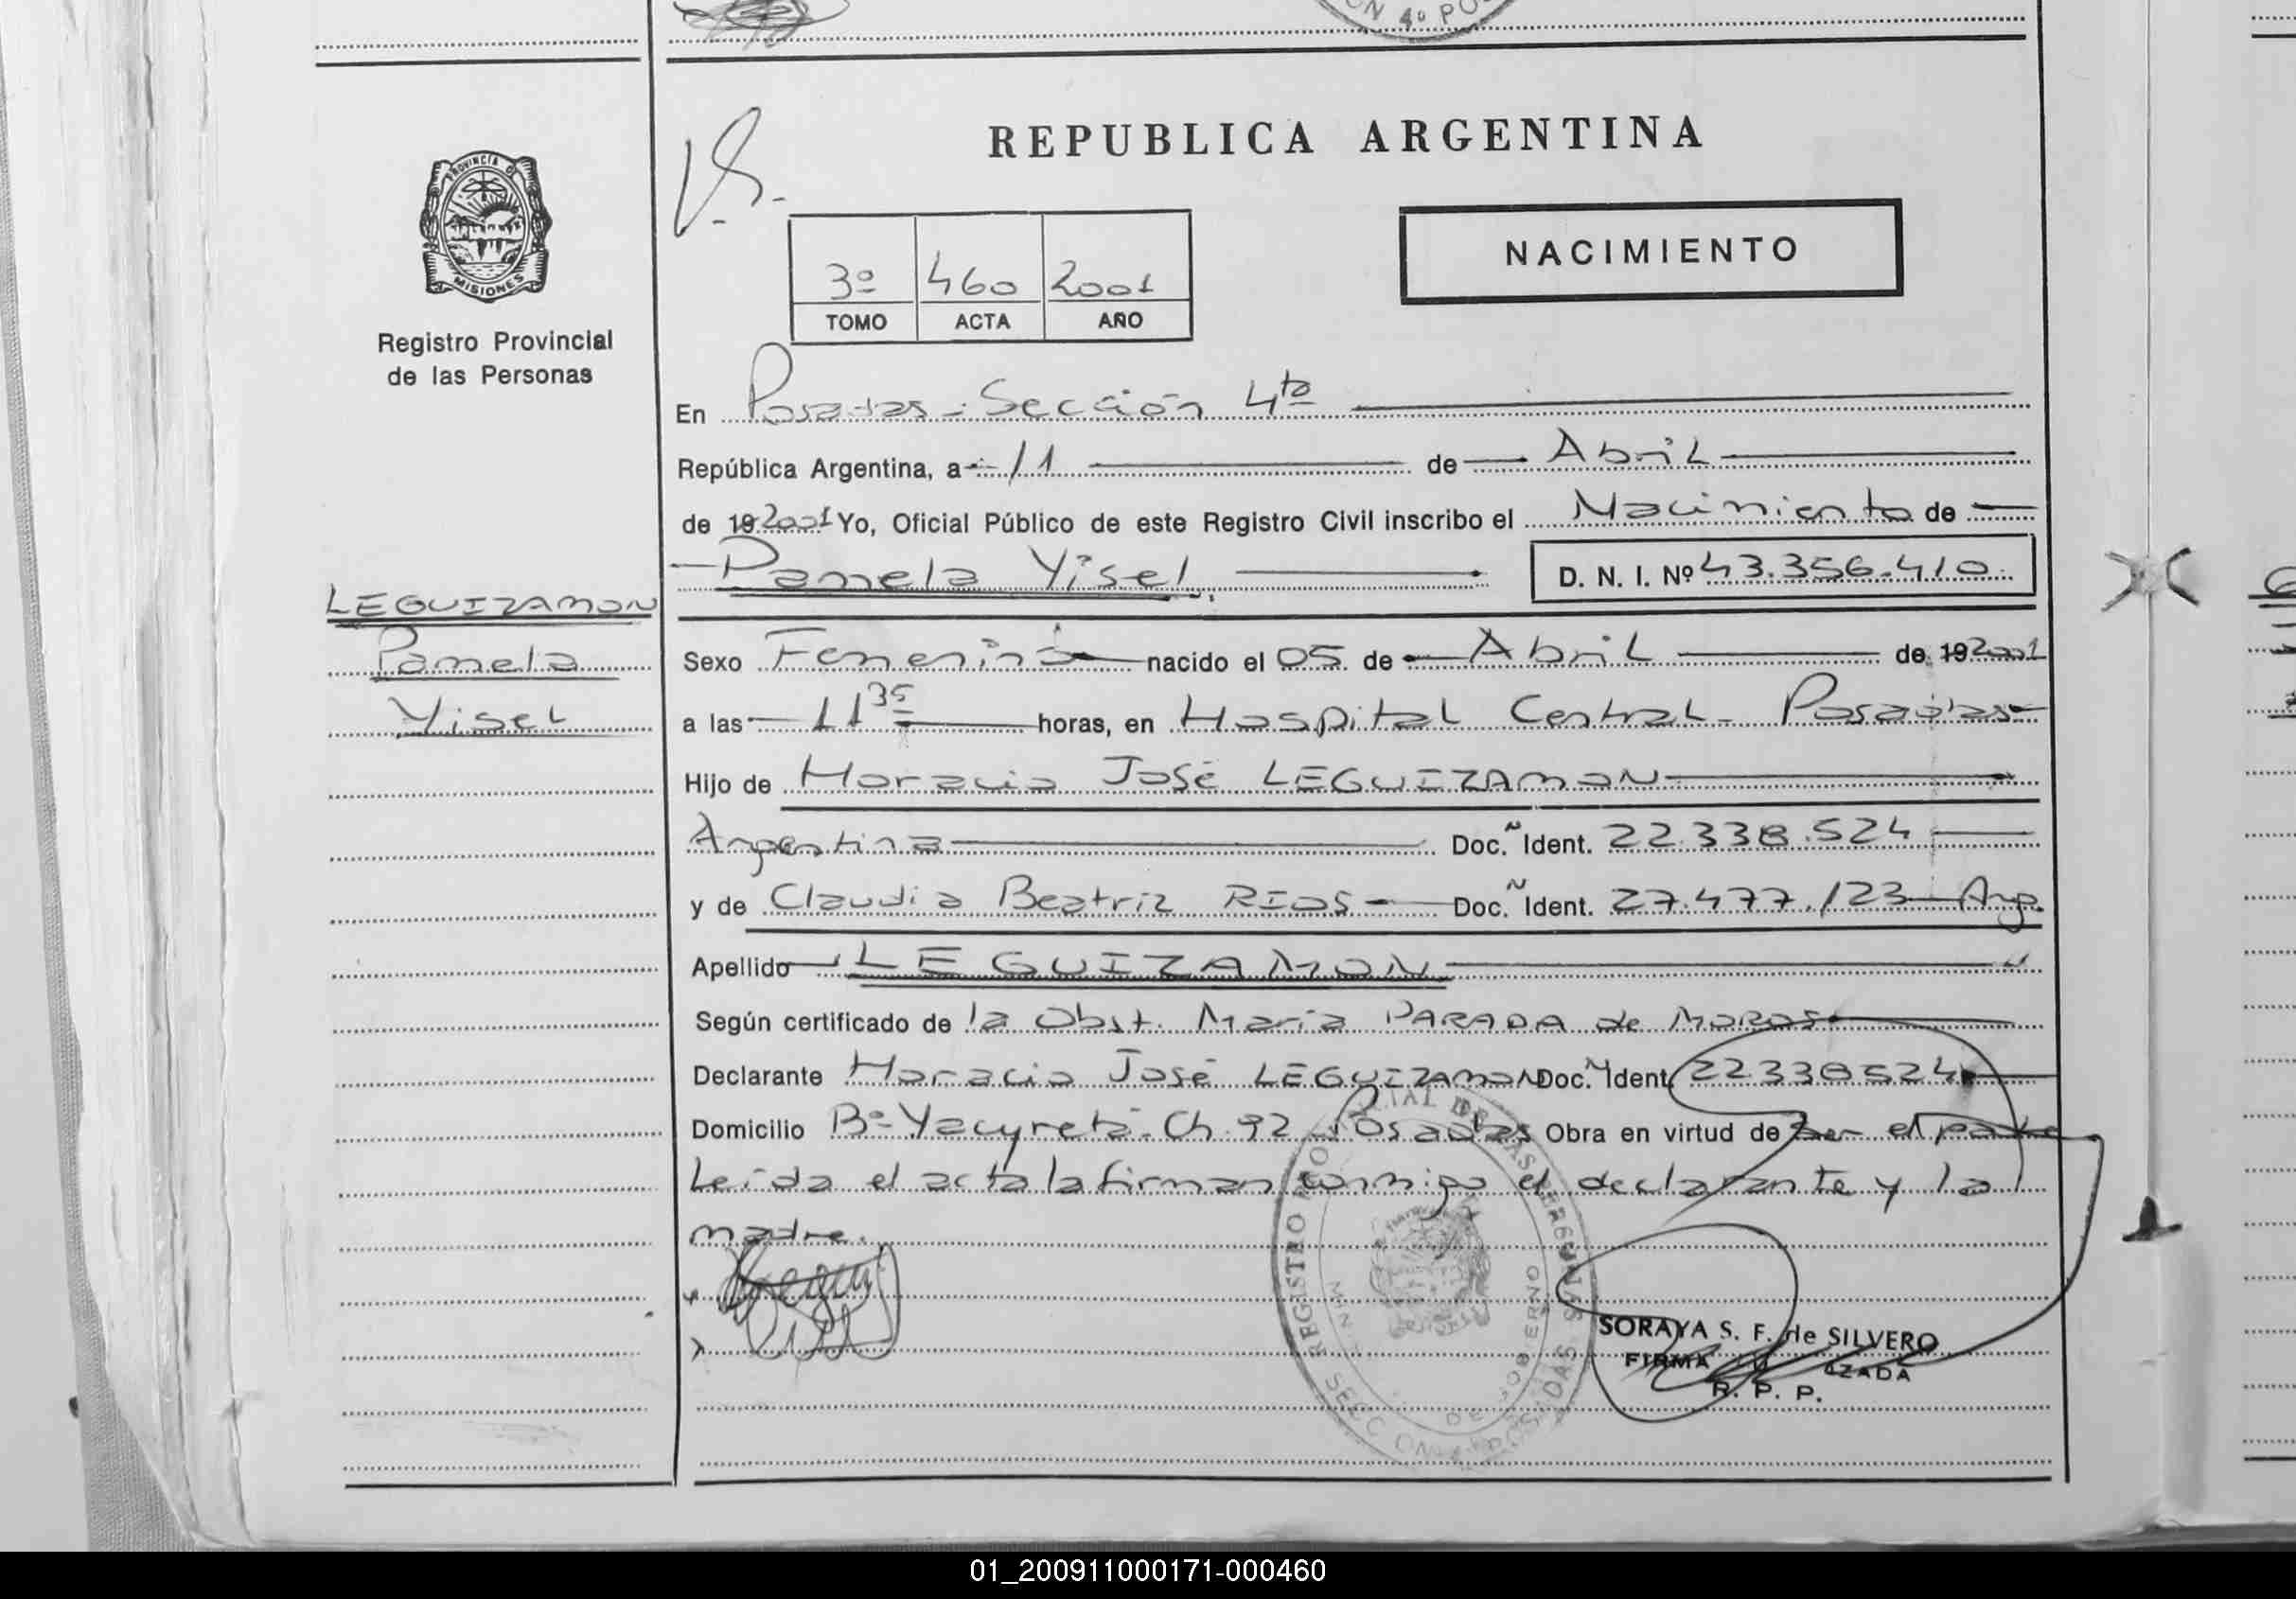 ON 4º PO
REPUBLICA ARGENTINA
PROVINCIA DE
MISIONES
Registro Provincial
de las Personas
NACIMIENTO
3º 460 2001
TOMO ACTA AÑO
En Posadas - Sección 4ta
República Argentina, a 11 de Abril
de 19 2001 Yo, Oficial Público de este Registro Civil inscribo el Nacimiento de
Pamela Yisel. D. N. I. Nº 43.356.410.
LEGUIZAMON
Pamela
Yisel
Sexo Femenino nacido el 05 de Abril de 19 2001
a las 11 35 horas, en Hospital Central - Posadas
Hijo de Horacio José LEGUIZAMON
Argentina Doc. Ident. 22.338.524
y de Claudia Beatriz RIOS Doc. Ident. 27.477.123 Arg.
Apellido LEGUIZAMON
Según certificado de la Obst. María PARADA de MOROS
Declarante Horacio José LEGUIZAMON Doc. Ident. 22338524
Domicilio Bº Yacyretá - Ch. 92 Posadas Obra en virtud de Ser el padre
Leída el acta la firman conmigo el declarante y la
madre.
REGISTRO
DE GOBIERNO
SORAYA S. F. de SILVERO
FIRMA
R. P. P.
01_200911000171-000460